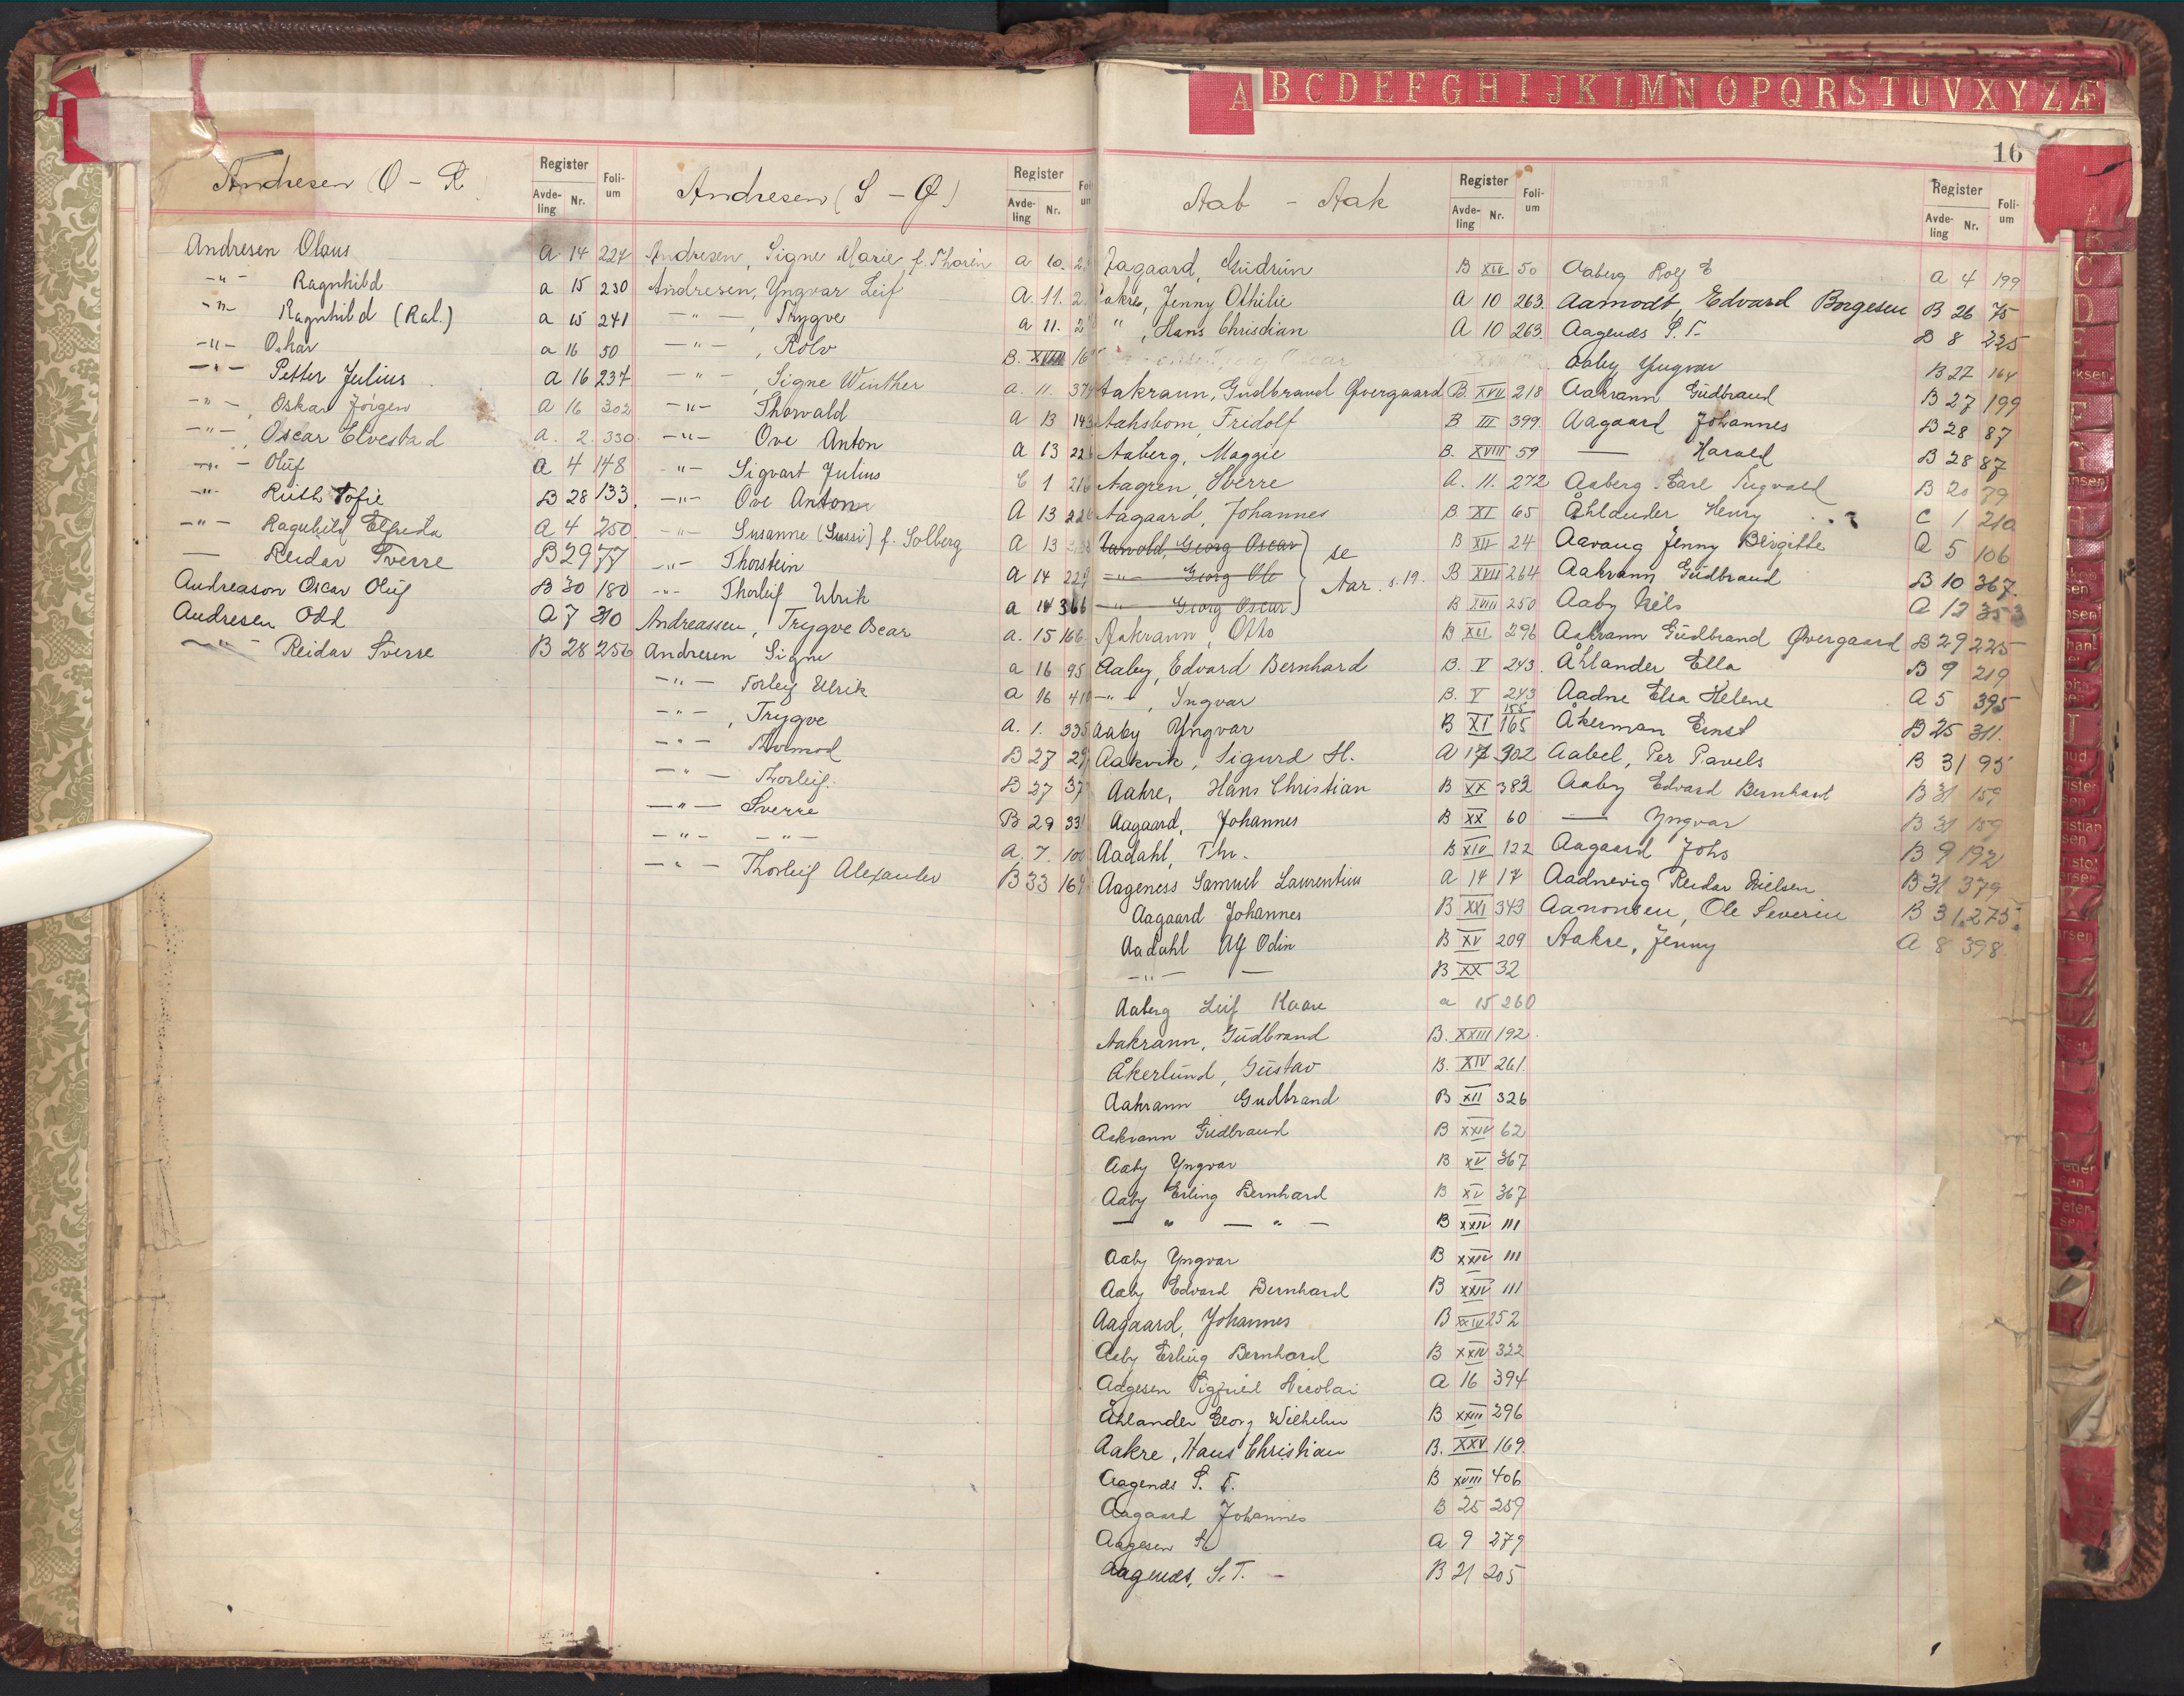 A B C D E F G H I J K L M N O P Q R S T U V X Y Z Æ
16
Andresen (O - R)
Register
Avde-ling Nr. Folium
Andresen Olaus A 14 224
-"- Ragnhild a 15 230
-"- Ragnhild (Ral.) a 15 241
-"- Oskar a 16 50
-"- Petter Julius A 16 237
-"- , Oskar Jörgen A 16 302
-"- , Oscar Elvestad A. 2. 330.
-"- Oluf A 4 148
-"- Ruth Sofie B 28 133
-"- Ragnhild Elfreda A 4 250
— Reidar Sverre B 29 77
Andreason Oscar Oluf B 30 180
Andresen Odd A 7 310
-"- Reidar Sverre B 28 256
Andresen (S - Ø)
Register
Avde-ling Nr.
Andresen, Signe Marie, f. Thorén a 10.
Andresen, Yngvar Leif A. 11.
-"- , Trygve a 11.
-"- , Rolv B. XVIII
-"- , Signe Winther a. 11. 374
-"- Thorvald a 13 143
-"- Ove Anton A 13
-"- Sigvart Julius C 1 216
-"- Ove Anton A 13
-"- Susanne (Sussi) f. Solberg A 13
-"- Thorstein A 14
-"- Thorleif Ulrik a 14 366
Andreassen, Trygve Bear a. 15 166
Andresen Signe a 16 95
-"- Torleif Ulrik a 16
-"- , Trygve a. 1. 335
-"- Thormod B 27
-"- Thorleif. B 27
-"- Sverre B 29
-"- -"- A. 7.
-"- Thorleif Alexander B 33 164
Aab - Aak
Register
Avde-ling Nr. Folium
Aagaard, Gudrun B XII 50
Aakre, Jenny Othilie A 10 263.
" , Hans Christian A 10 263.
Aakrann, Gudbrand Øvergaard B. XVII 218
Aahsbom, Fridolf B III 399.
Aaberg, Maggie B. XVIII 59
Aagren, Sverre A. 11. 272
Aagaard, Johannes B XI 65
Aarvold, Georg Oscar B XII 24
-"- Georg Ole B XVII 264
-"- Georg Oscar B XVIII 250
se Aar. s. 19.
Aakrann, Otto B XII 296
Aaby, Edvard Bernhard B. V 243.
-"- , Yngvar B. V 243
Aaby Yngvar B XI 165 155
Aakvik, Sigurd H. A 17 302
Aakre, Hans Christian B XX 382
Aagaard, Johannes B XX 60
Aadahl, Thr. B XIV 122
Aageness Samuel Laurentius A 14 17
Aagaard Johannes B XXI 343
Aadahl Alf Odin B XV 209
-"- — B XX 32
Aaberg Leif Kaare a 15 260
Aakrann, Gudbrand B. XXIII 192.
Åkerlund, Gustav B. XIV 261.
Aakrann Gudbrand B XII 326
Aakrann Gudbrand B XXIV 62
Aaby Yngvar B XV 367
Aaby Erling Bernhard B XV 367
— " — " — B XXIV 111
Aaby Yngvar B XXIV 111
Aaby Edvard Bernhard B XXIV 111
Aagaard, Johannes B XXIV 252
Aaby Erling Bernhard B XXIV 322
Aagesen Sigfried Nicolai A 16 394
Åhlander Georg Wilhelm B XXIII 296
Aakre, Hans Christian B. XXV 169.
Aagends S. T. B XVIII 406
Aagaard Johannes B 25 259
Aagesen A 9 279
Aagends, S. T. — B 21 205
Register
Avde-ling Nr. Folium
Aaberg Rolf E A 4 199
Aamodt, Edvard Borgesen B 26 75
Aagends S. T. B 8 225
Aaby Yngvar B 27 164
Aakrann Gudbrand B 27 199
Aagaard Johannes B 28 87
— Harald B 28 87
Aaberg Carl Sigvald B 20 79
Åhlander Henry C 1 210
Aavang Jenny Birgitte A 5 106
Aakrann Gudbrand B 10 367.
Aaby Nils A 12 353
Aakrann Gudbrand Øvergaard B 29 225
Åhlander Ella B 9 219
Aadne Elsa Helene A 5 395
Åkerman Ernst B 25 311.
Aabel, Per Pavels B 31 95
Aaby Edvard Bernhart B 31 159
— Yngvar B 31 159
Aagaard Johs B 9 192
Aadnevig Reidar Nielsen B 31 379
Aanonsen, Ole Severin B 31. 275.
Aakre, Jenny A 8 398